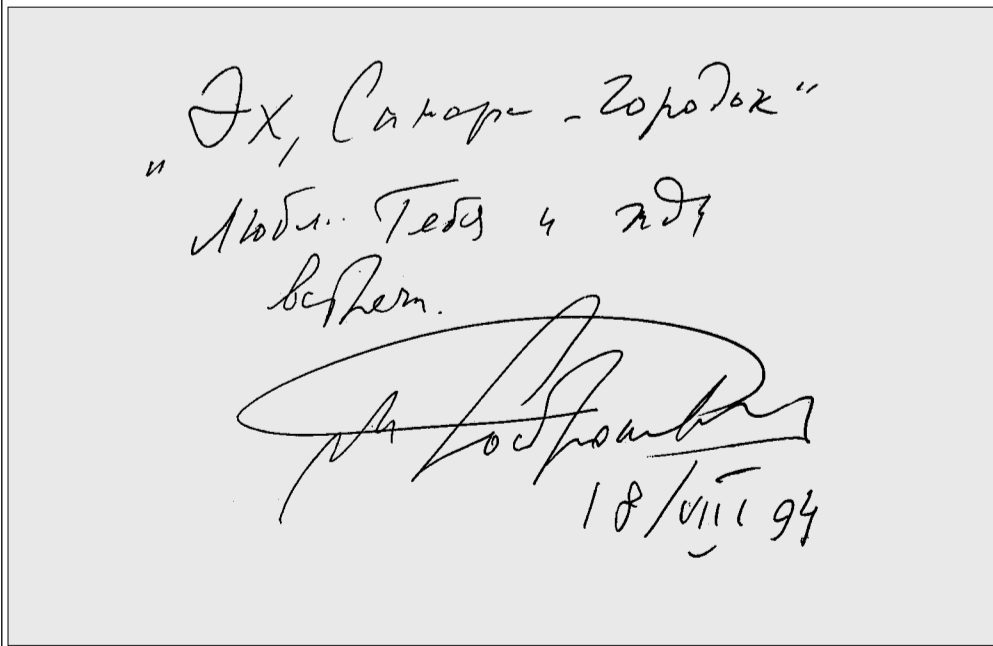 „Эх, Самара-городок“
Люблю Тебя и жду
встречи.
М Ростропович
18/VIII 94